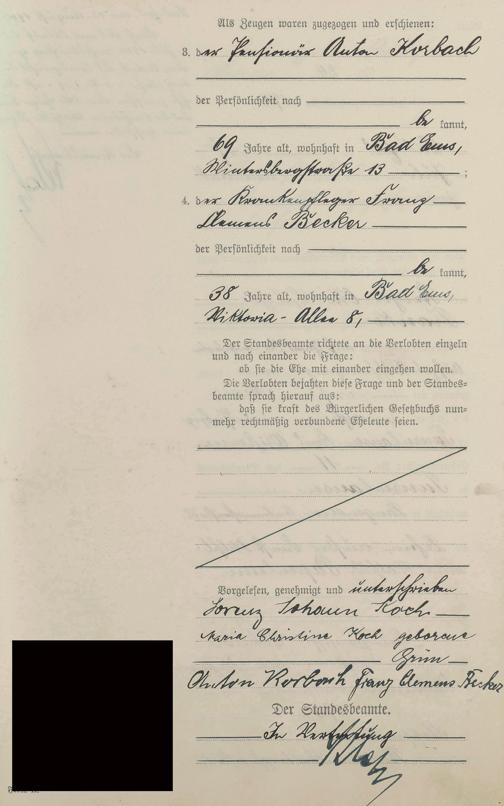 Als Zeugen waren zugezogen und erschienen:
3. der Pensionär Anton Korbach
der Persönlichkeit nach
be kannt,
69 Jahre alt, wohnhaft in Bad Ems,
Wintersbergstraße 13 ;
4. der Krankenpfleger Franz
Clemens Becker
der Persönlichkeit nach
be kannt,
38 Jahre alt, wohnhaft in Bad Ems,
Viktoria-Allee 8,
Der Standesbeamte richtete an die Verlobten einzeln
und nach einander die Frage:
ob sie die Ehe mit einander eingehen wollen.
Die Verlobten bejahten diese Frage und der Standes-
beamte sprach hierauf aus:
daß sie kraft des Bürgerlichen Gesetzbuchs nun-
mehr rechtmäßig verbundene Eheleute seien.
Vorgelesen, genehmigt und unterschrieben
Lorenz Johann Koch
Maria Christine Koch geborene
Grün
Anton Korbach Franz Clemens Becker
Der Standesbeamte.
In Vertretung